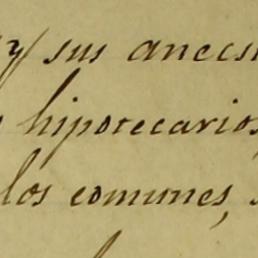 y sus anecs
hipotecarios,
los comunes,